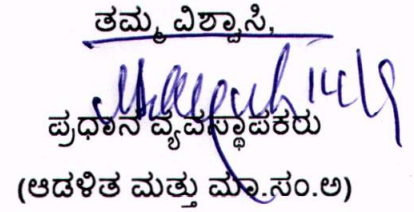 ತಮ್ಮ ವಿಶ್ವಾಸಿ,
ಪ್ರಧಾನ ವ್ಯವಸ್ಥಾಪಕರು
(ಆಡಳಿತ ಮತ್ತು ಮಾ.ಸಂ.ಅ)